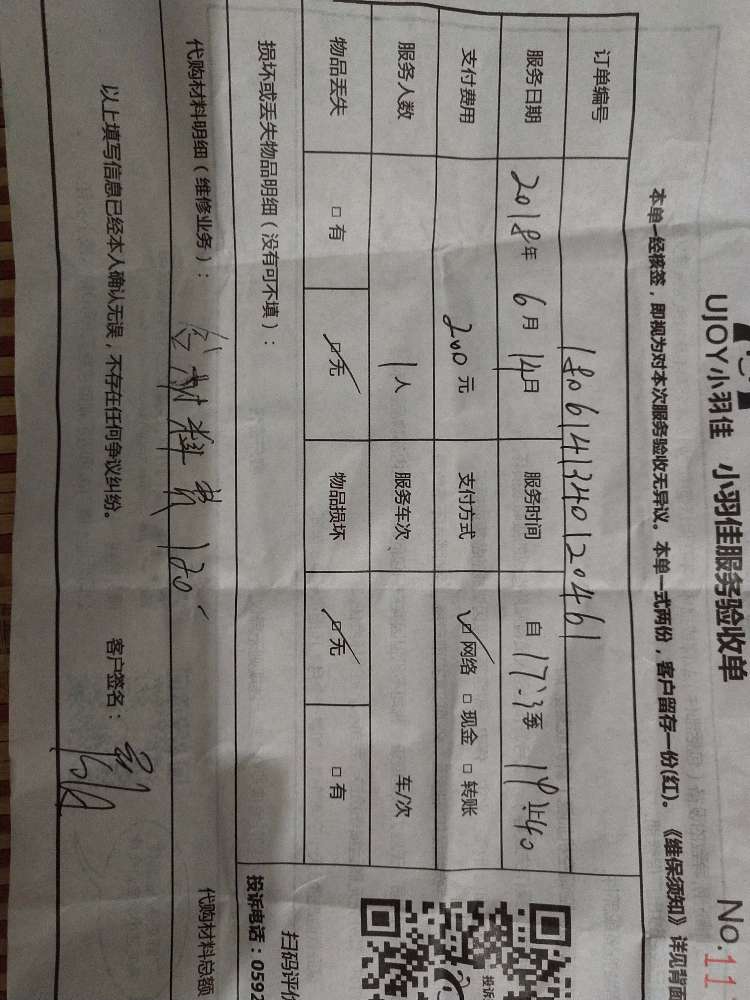 UJOY小羽佳 小羽佳服务验收单 No.11
本单一经核签，即视为对本次服务验收无异议。本单一式两份，客户留存一份(红)。《维保须知》详见背面
订单编号 1806141340120461
服务日期 2018年 6月 14日 服务时间 自 17:3至 19止40
支付费用 200元 支付方式 ☑网络 □现金 □转账
服务人数 1人 服务车次 车/次
物品丢失 □有 ☑无 物品损坏 ☑无 □有
损坏或丢失物品明细（没有可不填）：
扫码评价
投诉电话：0592
代购材料明细（维修业务）： 材料费 代购材料总额
以上填写信息已经本人确认无误，不存在任何争议纠纷。 客户签名：